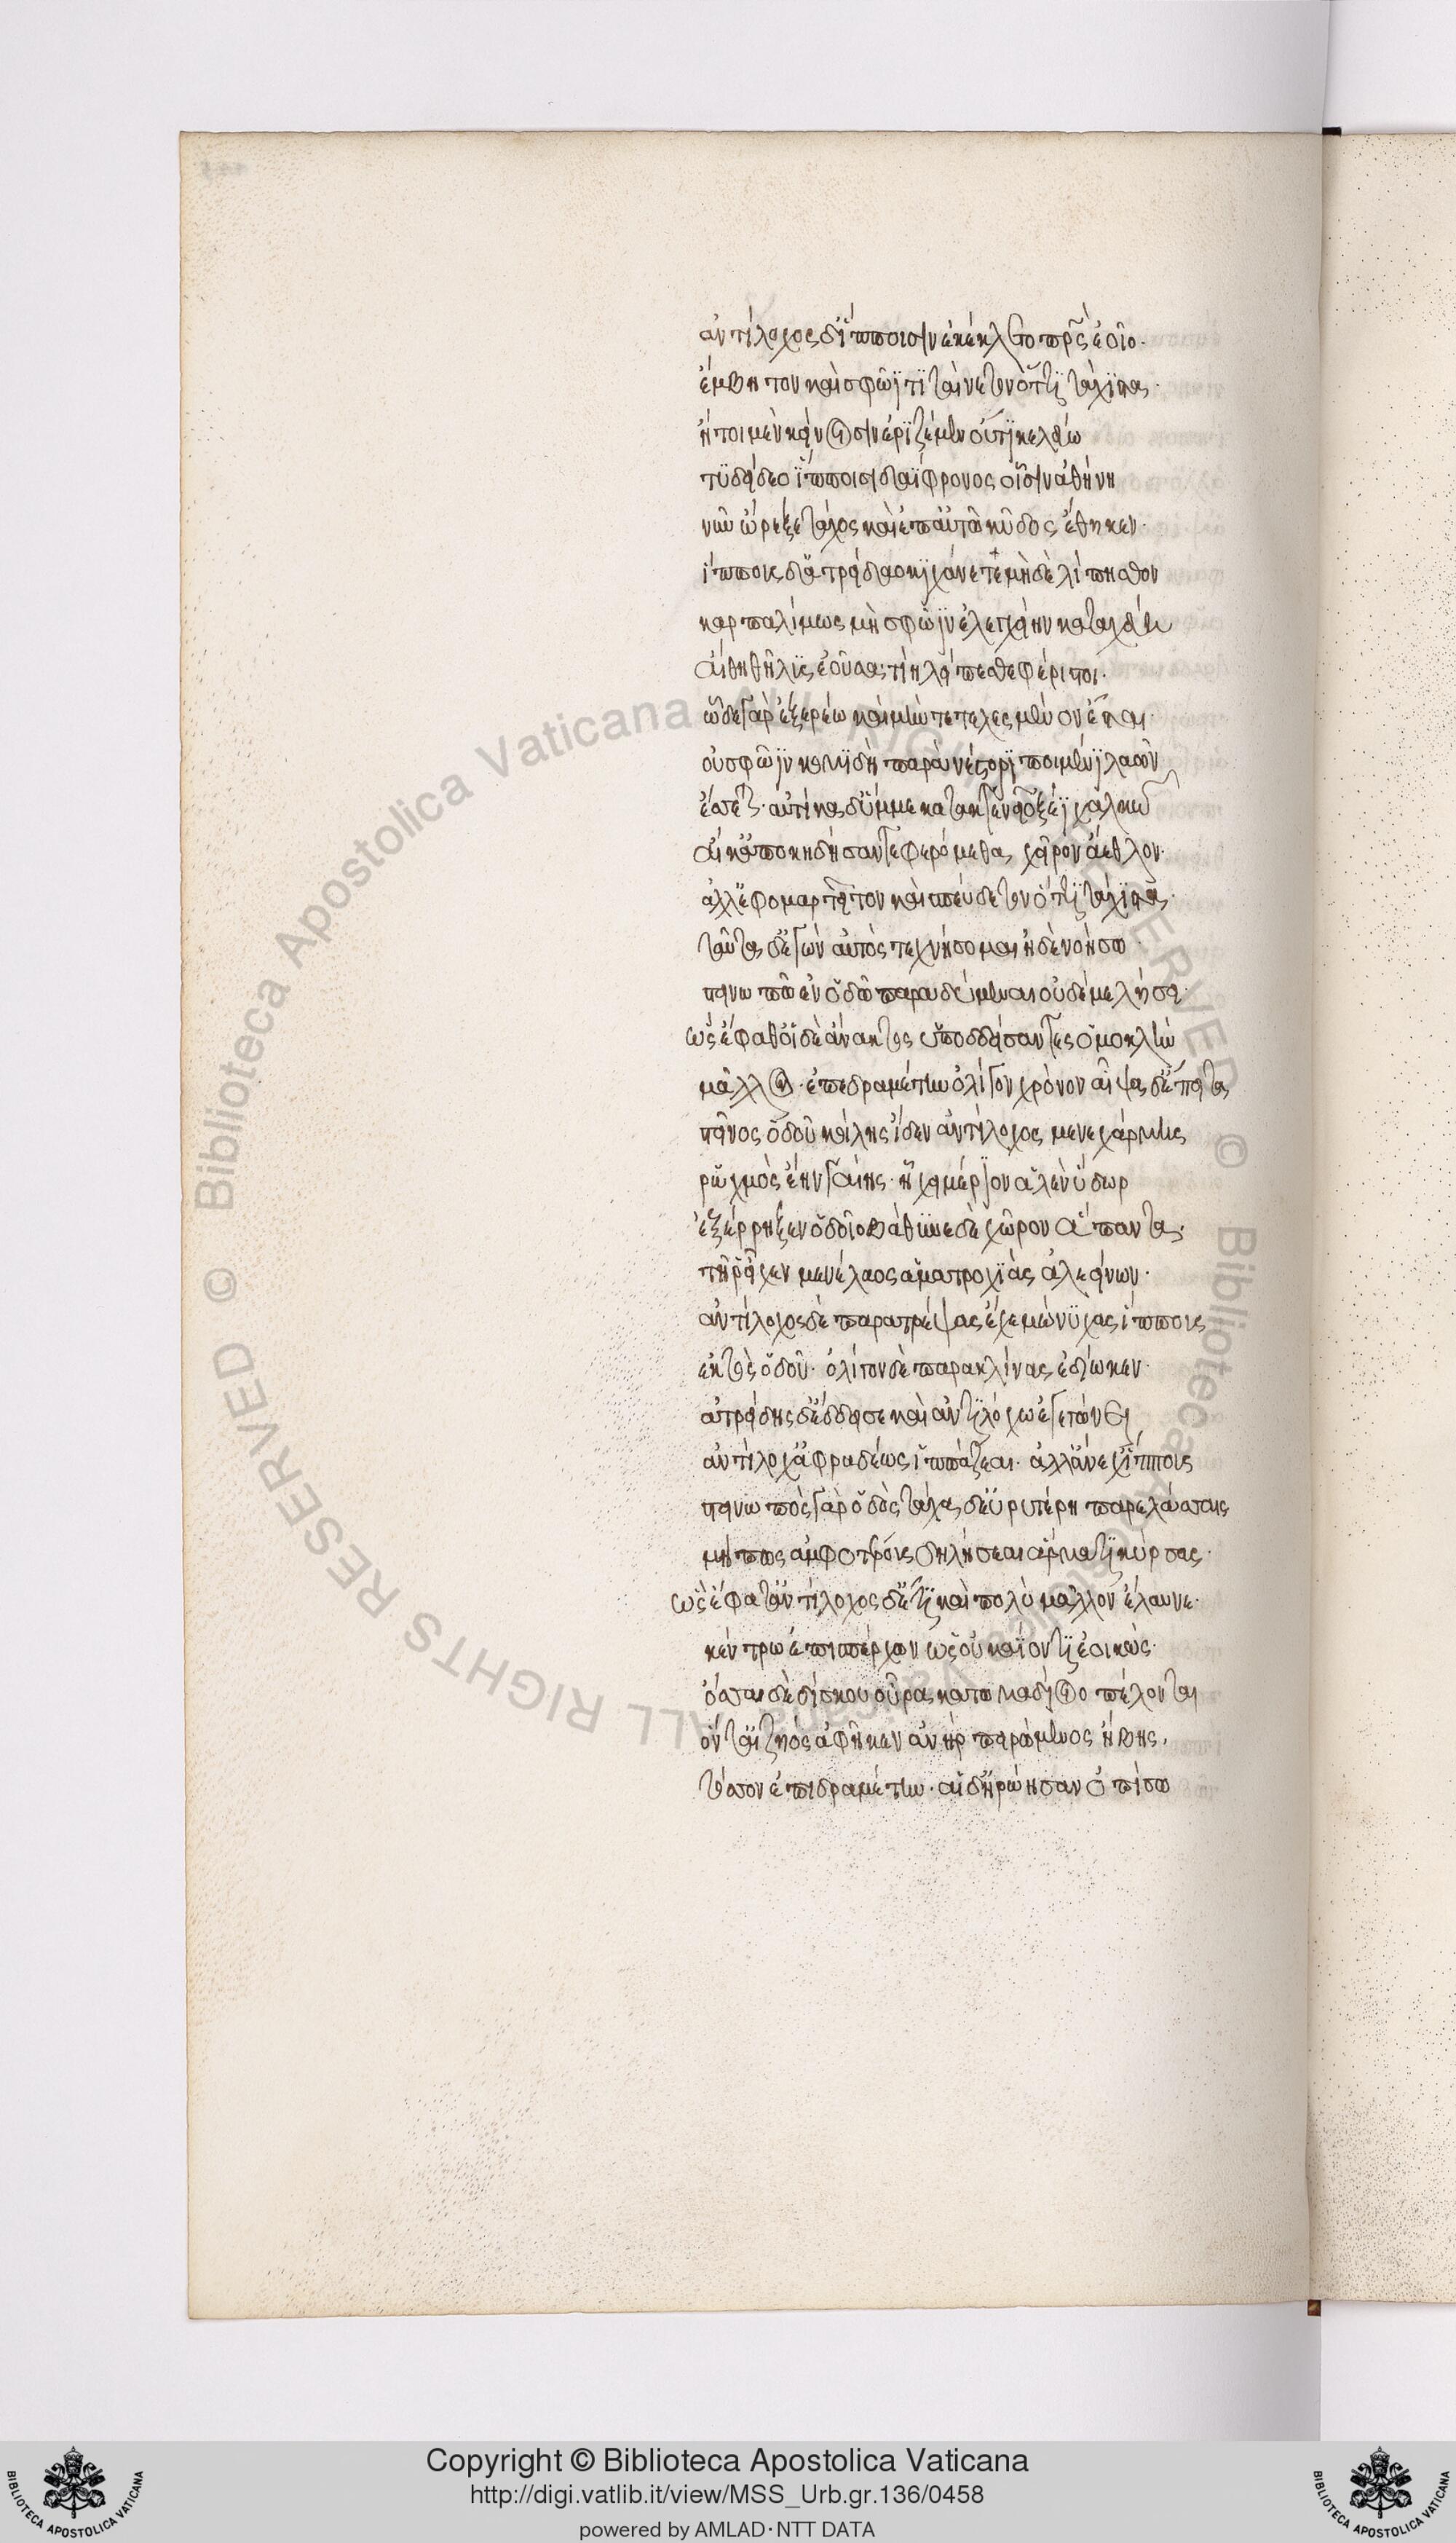 ἀντίλοχος δ' ἵπποισιν ἐκέκλετο πατρὸς ἑοῖο·
ἔμβητον καὶ σφῶϊ τιταίνετον ὅττι τάχιστα·
ἤτοι μὲν κείνοισιν ἐριζέμεν οὔτι κελεύω
τυδείδεω ἵπποισι δαΐφρονος οἷσιν ἀθήνη
νῦν ὤρεξε τάχος καὶ ἐπ' αὐτῶ κῦδος ἔθηκεν·
ἵππους δ' ἀτρείδαο κιχάνετε μηδὲ λίπησθον
καρπαλίμως μὴ σφῶϊν ἐλεγχείην καταχεύη
αἴθη θῆλυς ἐοῦσα· τίη λείπεσθε φέριστοι·
ὧδε γὰρ ἐξερέω καὶ μὴν τετελεσμένον ἔσται·
οὐ σφῶϊν κομιδὴ παρὰ νέστορι ποιμένι λαῶν
ἔσσεται· αὐτίκα δ' ὔμμε κατακτενεῖ ὀξέϊ χαλκῶ
αἴ κ' ἀποκηδήσαντε φερώμεθα χεῖρον ἄεθλον·
ἀλλ' ἐφομαρτεῖτον καὶ σπεύδετον ὅττι τάχιστα·
ταῦτα δ' ἐγὼν αὐτὸς τεχνήσομαι ἠδὲ νοήσω·
στεινωπῶ ἐν ὁδῶ παραδύμεναι οὐδέ με λήσει·
ὣς ἔφαθ' οἱ δὲ ἄνακτος ὑποδδείσαντες ὁμοκλὴν
μᾶλλον ἐπεδραμέτην ὀλίγον χρόνον αἶψα δ' ἔπειτα
στεῖνος ὁδοῦ κοίλης ἴδεν ἀντίλοχος μενεχάρμης
ῥωχμὸς ἔην γαίης· ἧ χειμέριον ἀλὲν ὕδωρ
ἐξέρρηξεν ὁδοῖο βάθυνε δὲ χῶρον ἅπαντα·
τῆ ῥ' εἶχεν μενέλαος ἁματροχιὰς ἀλεείνων·
ἀντίλοχος δὲ παρατρέψας ἔχε μώνυχας ἵππους
ἐκτὸς ὁδοῦ· ὀλίγον δὲ παρακλίνας ἐδίωκεν·
ἀτρείδης δ' ἔδδεισε καὶ ἀντιλόχω ἐγεγώνει
ἀντίλοχ' ἀφραδέως ἱππάζεαι· ἀλλ' ἄνεχ' ἵππους
στεινωπὸς γὰρ ὁδὸς τάχα δ' εὐρυτέρη παρελάσσεις
μή πως ἀμφοτέρους δηλήσεαι ἅρματι κύρσας·
ὣς ἔφατ' ἀντίλοχος δ' ἔτι καὶ πολὺ μᾶλλον ἔλαυνε·
κέντρω ἐπισπέρχων ὡς οὐκ ἀΐοντι ἐοικώς·
ὅσσα δὲ δίσκου οὖρα κατωμαδίοιο πέλονται
ὅν τ' αἰζηὸς ἀφῆκεν ἀνὴρ πειρώμενος ἥβης,
τόσσον ἐπιδραμέτην· αἱ δ' ἠρώησαν ὀπίσσω
Copyright © Biblioteca Apostolica Vaticana
http://digi.vatlib.it/view/MSS_Urb.gr.136/0458
powered by AMLAD·NTT DATA